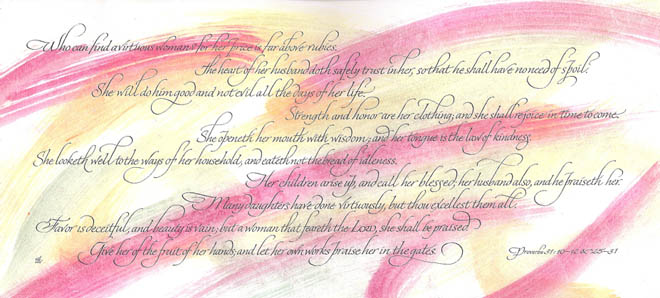 Who can find a virtuous woman? for her price is far above rubies.
The heart of her husband doth safely trust in her, so that he shall have no need of spoil.
She will do him good and not evil all the days of her life.
Strength and honor are her clothing; and she shall rejoice in time to come.
She openeth her mouth with wisdom; and her tongue is the law of kindness.
She looketh well to the ways of her household, and eateth not the bread of idleness.
Her children arise up, and call her blessed; her husband also, and he praiseth her.
Many daughters have done virtuously, but thou excellest them all.
Favor is deceitful, and beauty is vain; but a woman that feareth the LORD, she shall be praised.
Give her of the fruit of her hands; and let her own works praise her in the gates.
Proverbs 31:10-12 & 25-31